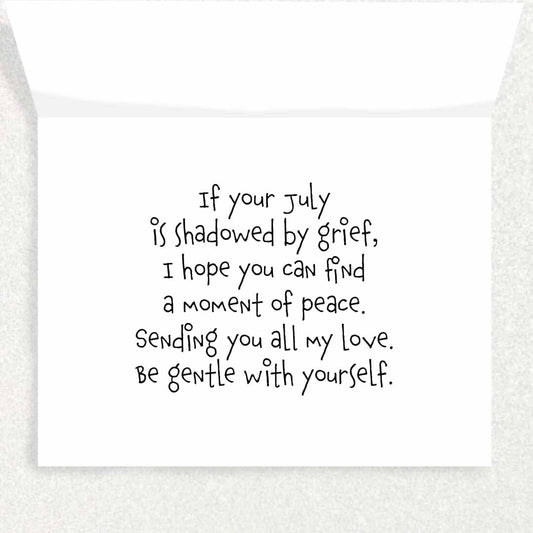 If your July
is shadowed by grief,
I hope you can find
a moment of peace.
Sending you all my love.
Be gentle with yourself.